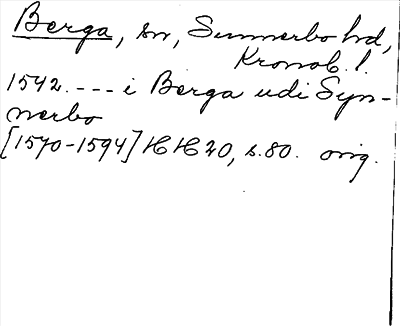 Berga, sn, Sunnerbo hd,
Kronob. l.
1542. --- i Berga udi Syn-
nerbo
[1570-1594] HH 20, s. 80. orig.